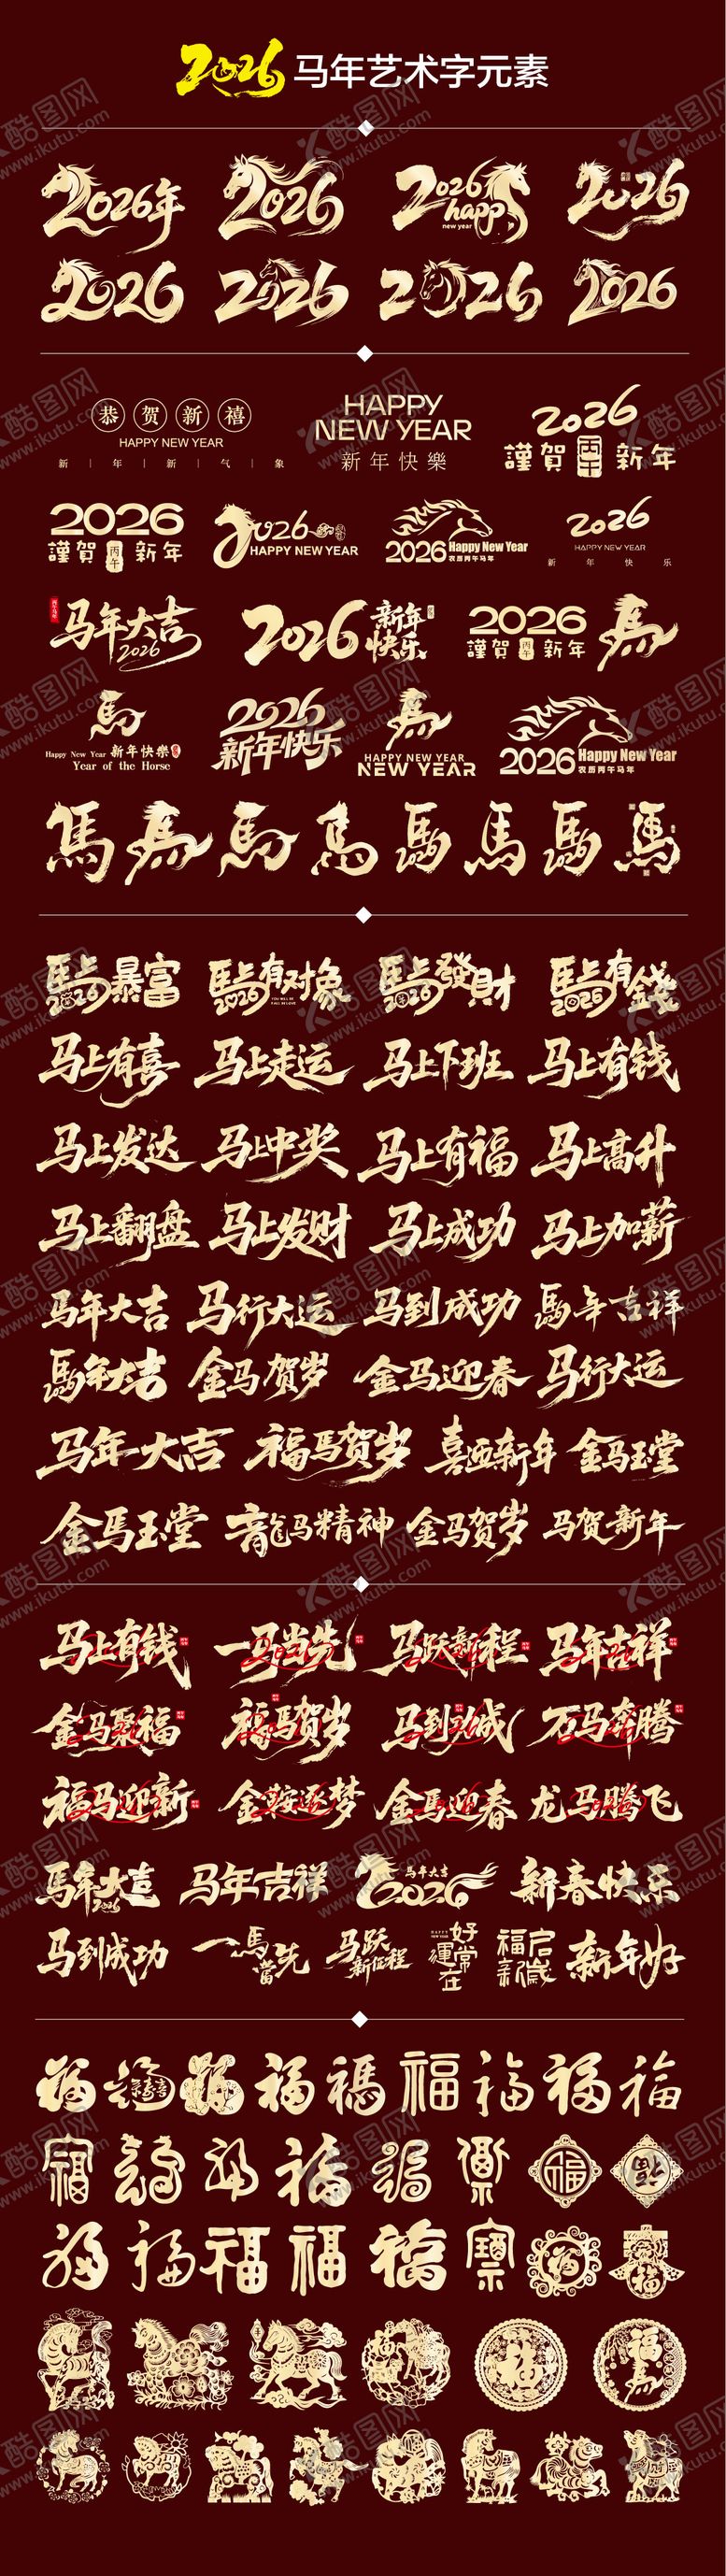 2026 马年艺术字元素
2026年 2026 2026 happy new year 2026
2026 2026 2026 2026
恭贺新禧 HAPPY NEW YEAR 新 | 年 | 新 | 气 | 象
HAPPY NEW YEAR 新年快樂
2026 謹賀 丙午 新年
2026 謹賀 丙午 新年
2026 HAPPY NEW YEAR
2026 Happy New Year 农历丙午马年
2026 HAPPY NEW YEAR 新年快乐
马年大吉 2026
2026 新年快乐
2026 謹賀 丙午 新年 馬
馬 Happy New Year 新年快樂 Year of the Horse
2026 新年快乐
馬 HAPPY NEW YEAR NEW YEAR
2026 Happy New Year 农历丙午马年
馬 馬 馬 馬 馬2026 馬 馬2026 馬
馬上暴富 2026 馬上有对象 2026 馬上發財 2026 馬上有錢 2026
马上有喜 马上走运 马上下班 马上有钱
马上发达 马上中奖 马上有福 马上高升
马上翻盘 马上发财 马上成功 马上加薪
馬年大吉 马行大运 马到成功 馬年吉祥
馬年大吉 2026 金马贺岁 金马迎春 马行大运
马年大吉 福马贺岁 喜迎新年 金马玉堂
金馬玉堂 龍马精神 金马贺岁 马贺新年
马上有钱 一马当先 马跃新程 马年吉祥
金马聚福 福马贺岁 马到功成 万马奔腾
福马迎新 金鞍逐梦 金馬迎春 龙马腾飞
馬年大吉 2026 马年吉祥 馬年大吉 2026 新春快乐
马到成功 一馬當先 马跃新征程 好運常在 福启新歲 新年好
福 福 福 福 福 福 福 福
福 福 福 福 福
福 福 福 福 福 福
福 福馬
酷图网
www.ikutu.com